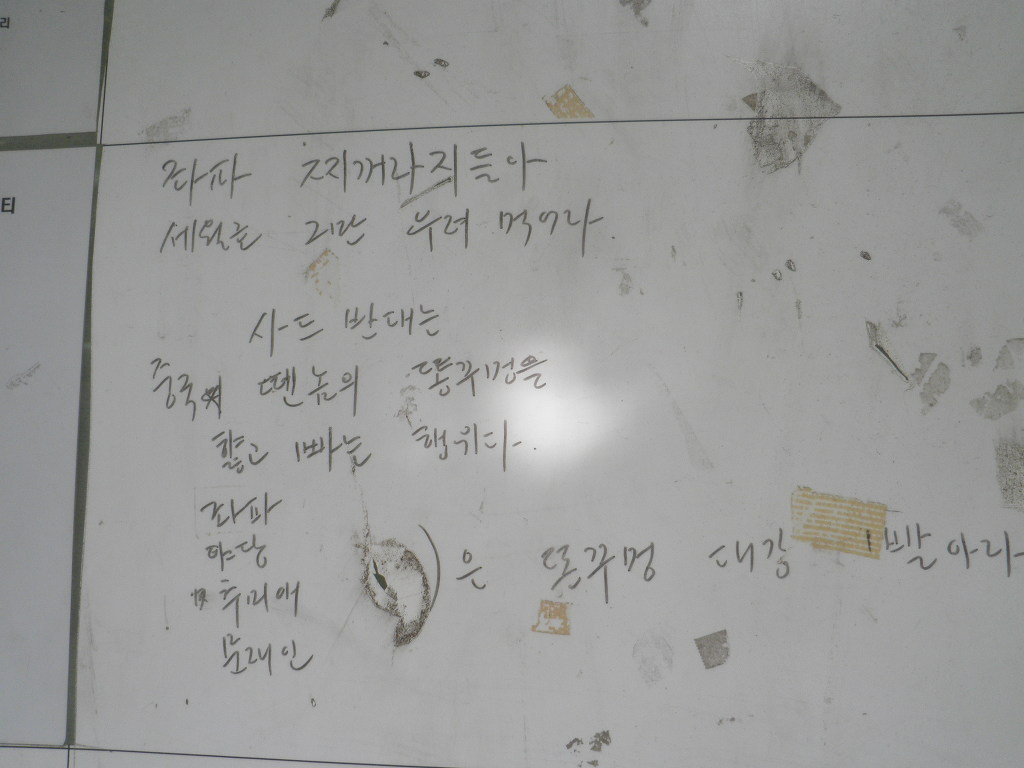 리
티
좌파 찌꺼라지들아
세월로 그만 우려 먹어라.
사드 반대는
중국 뗀놈의 똥꾸멍을
핥고 빠는 행위다.
좌파
야당
추미애
문재인
은 똥꾸멍 대강 빨아라